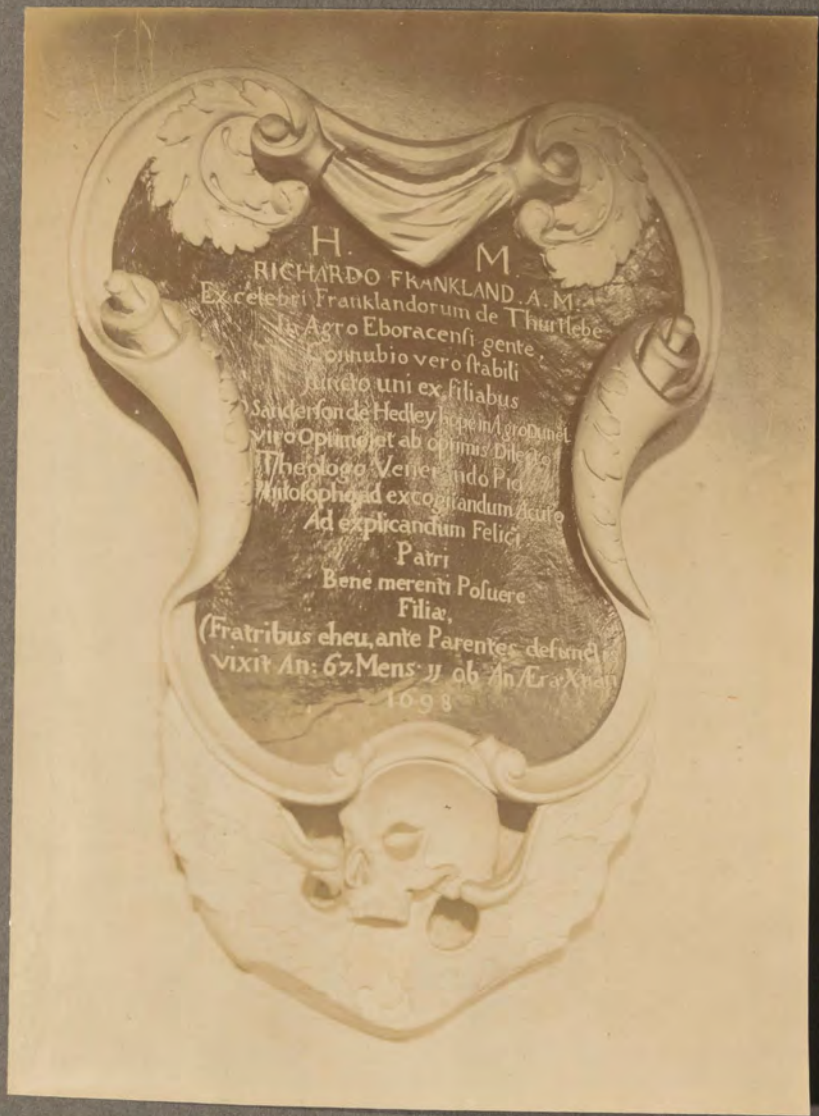 H. M.
RICHARDO FRANKLAND. A. M.
Ex celebri Franklandorum de Thurtlebe
In Agro Eboracenſi gente,
Connubio vero ſtabili
Juncto uni ex filiabus
Sanderſon de Hedley hope in Agro Dunel
viro Optimo et ab optimis Dilecto
Theologo Venerando Pio
Philoſopho ad excogitandum Acuto
Ad explicandum Felici
Patri
Bene merenti Poſuere
Filiæ,
(Fratribus eheu, ante Parentes defunctis
vixit An: 67. Mens: 11 ob An Æra Xnæ
1698